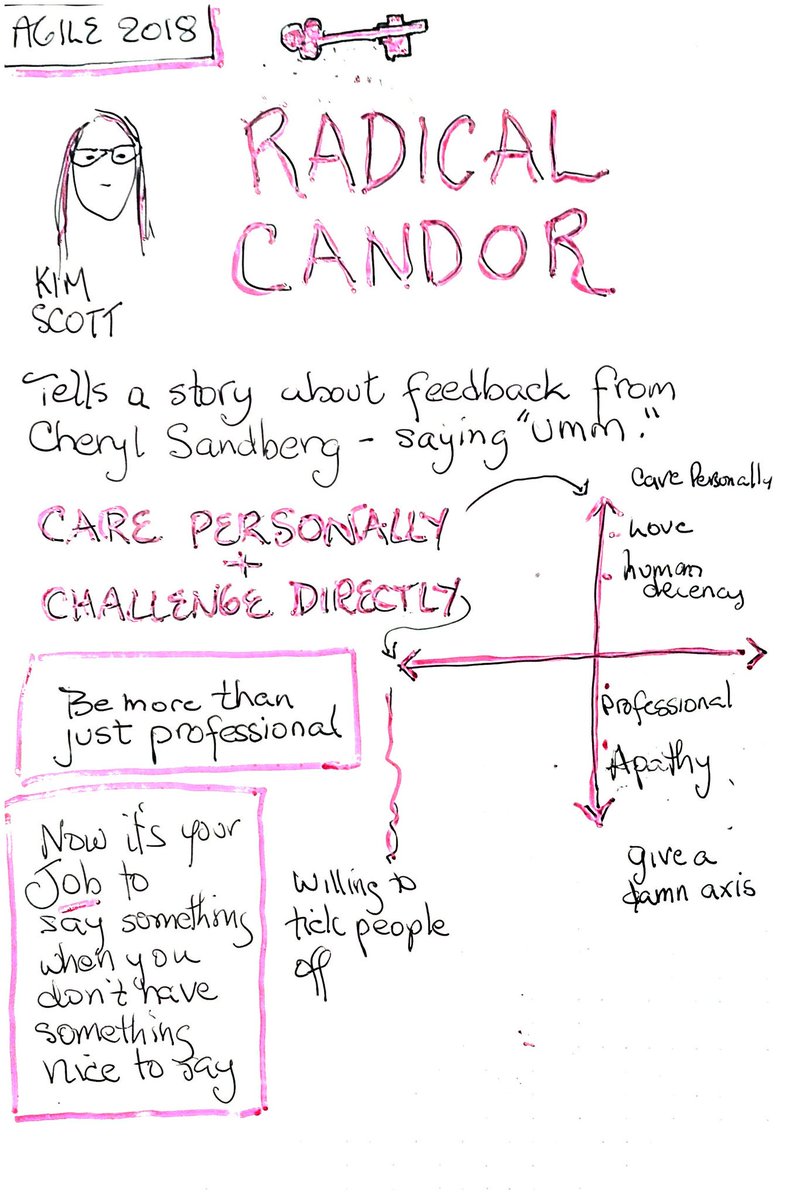 AGILE 2018
RADICAL
CANDOR
KIM
SCOTT
Tells a story about feedback from
Cheryl Sandberg - saying "umm."
CARE PERSONALLY
+
CHALLENGE DIRECTLY
Care Personally
Love
human
decency
Professional
Apathy
give a
damn axis
Be more than
just professional
Willing to
tick people
off
Now it's your
Job to
say something
when you
don't have
something
nice to say